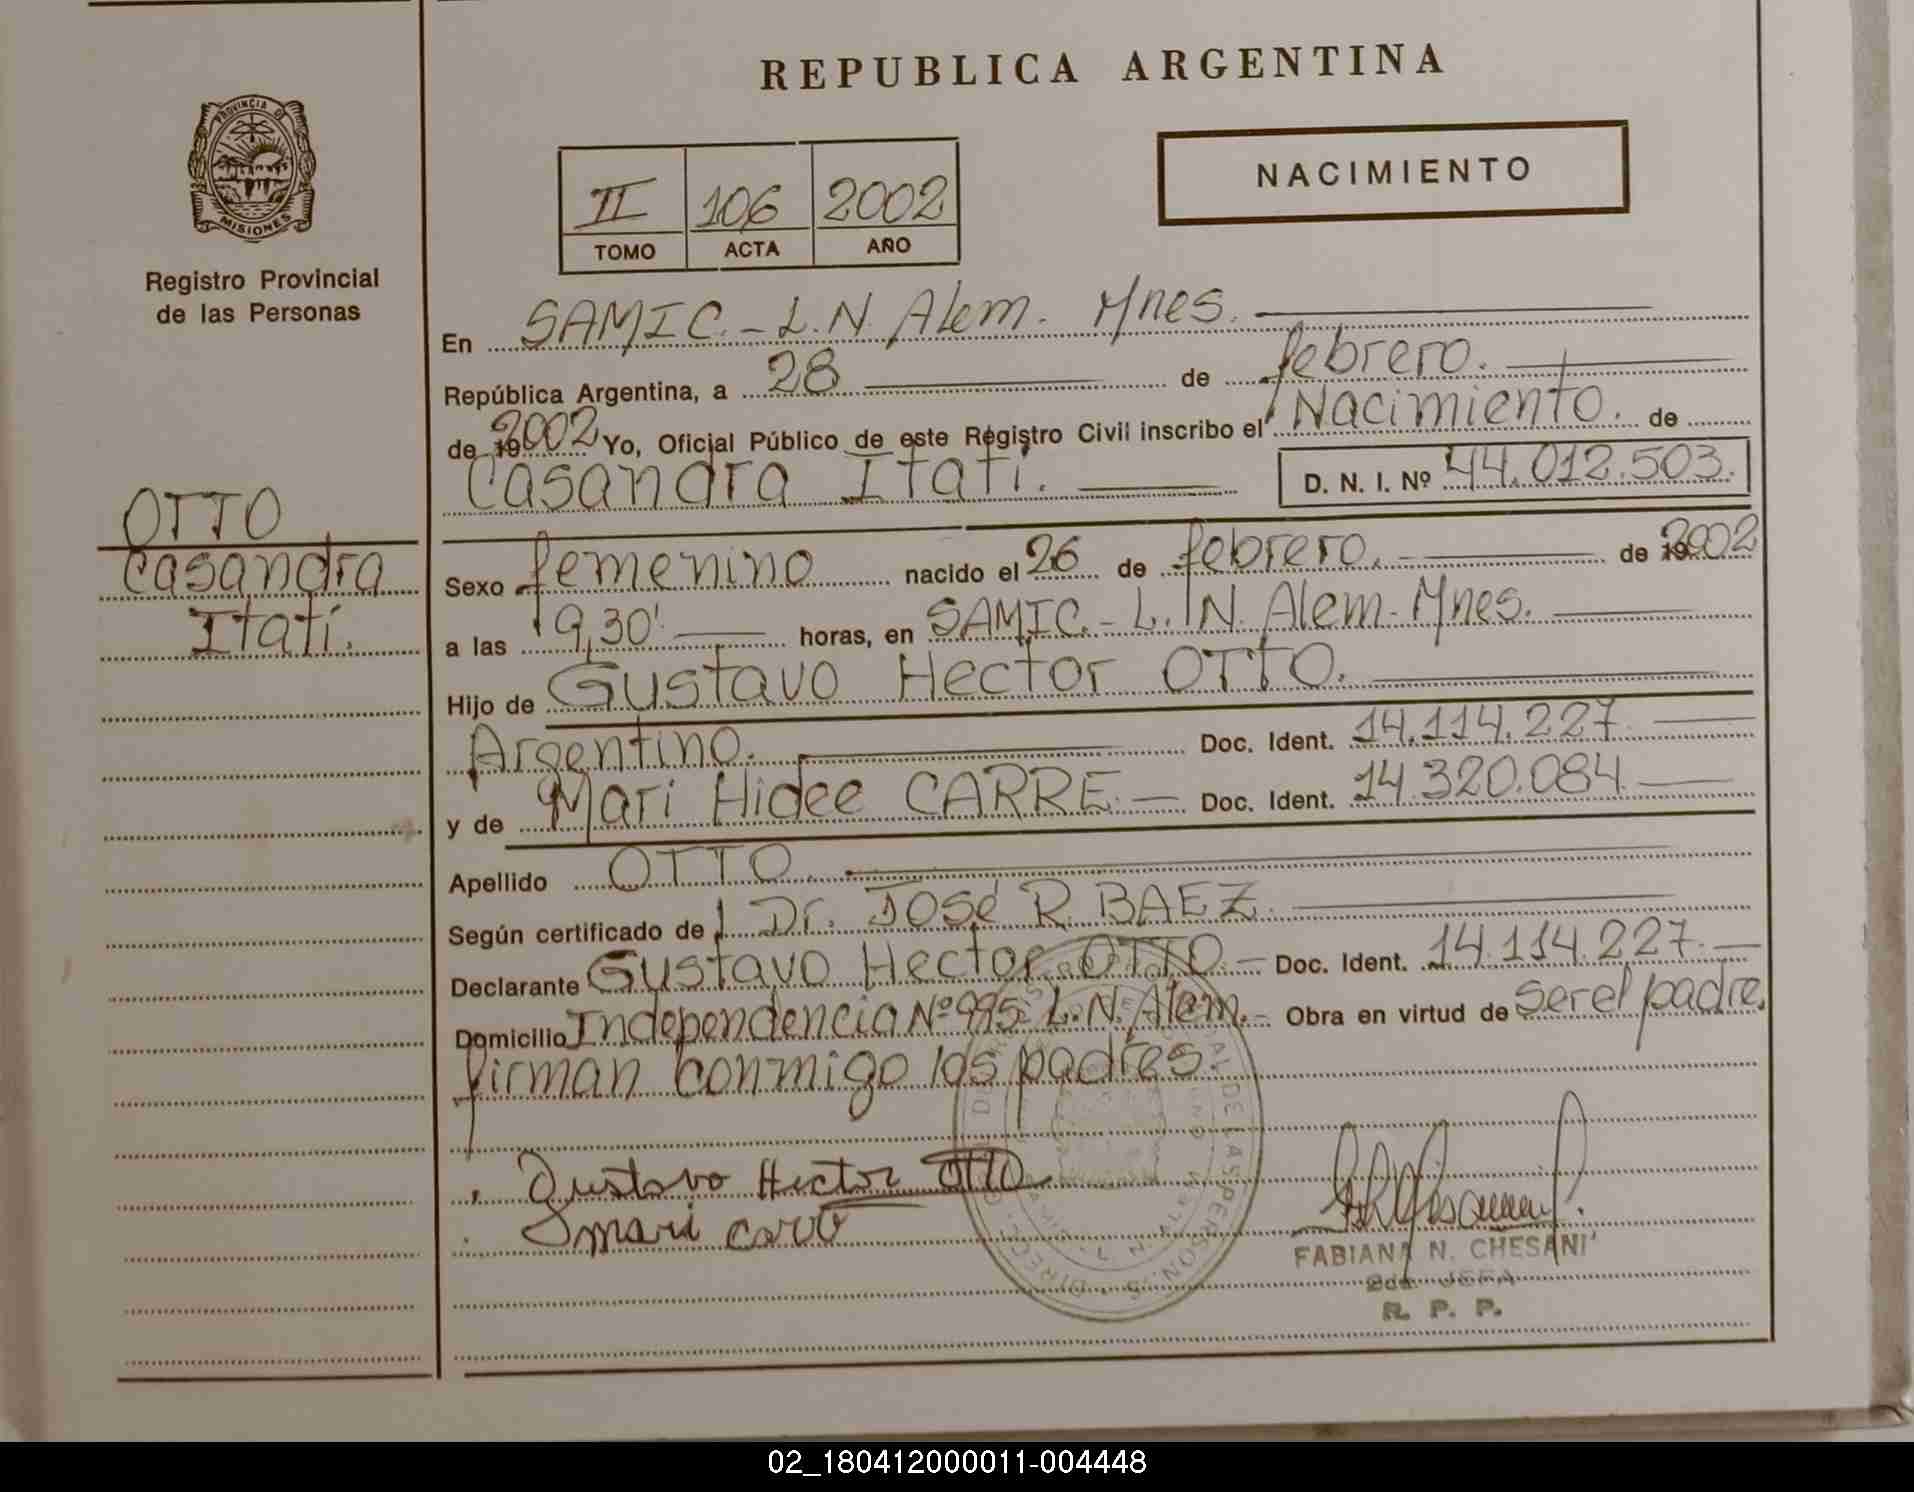 REPUBLICA ARGENTINA
PROVINCIA DE
MISIONES
Registro Provincial
de las Personas
II 106 2002
TOMO ACTA AÑO
NACIMIENTO
En SAMIC.-L.N.Alem. Mnes.
República Argentina, a 28 de febrero.
de 192002 Yo, Oficial Público de este Registro Civil inscribo el Nacimiento. de
Casandra Itatí. D. N. I. Nº 44.012.503.
OTTO
Casandra
Itatí.
Sexo femenino nacido el 26 de febrero. de 192002
a las 9,30' horas, en SAMIC.-L.N. Alem-Mnes.
Hijo de Gustavo Hector OTTO.
Argentino. Doc. Ident. 14.114.227.
y de Mari Hidee CARRE.- Doc. Ident. 14.320.084.
Apellido OTTO.
Según certificado de Dr. José R. BAEZ.
Declarante Gustavo Hector OTTO.- Doc. Ident. 14.114.227.-
Domicilio Independencia Nº 995 L.N. Alem.- Obra en virtud de ser el padre.
firman conmigo los padres.
Gustavo Hector OTTO
mari carré
DE LAS PERSONAS
FABIANA N. CHESANI
2da JEFA
R. P. P.
02_180412000011-004448